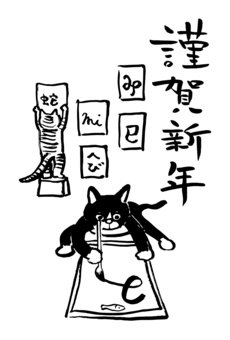 謹賀新年
み
巳
mi
へび
蛇